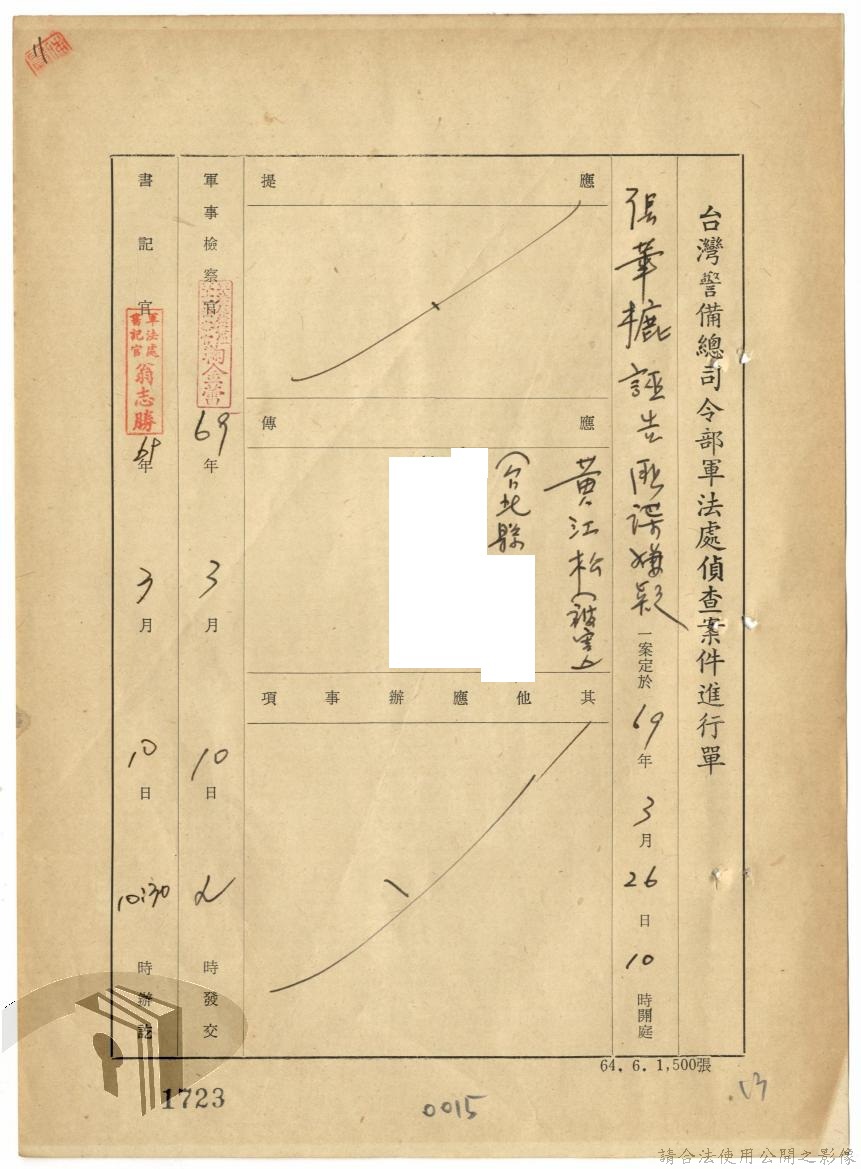 台灣警備總司令部軍法處偵查案件進行單
張華摝誣告匪諜嫌疑一案定於69年3月26日10時開庭
應提
應傳
黃江松(被害人)
(台北縣
其他應辦事項
軍事檢察官
69年3月10日
時發交
書記官
軍法處書記官翁志勝
69年3月10日10:30時辦訖
64.6.1,500張
1723
0015
13
請合法使用公開之影像